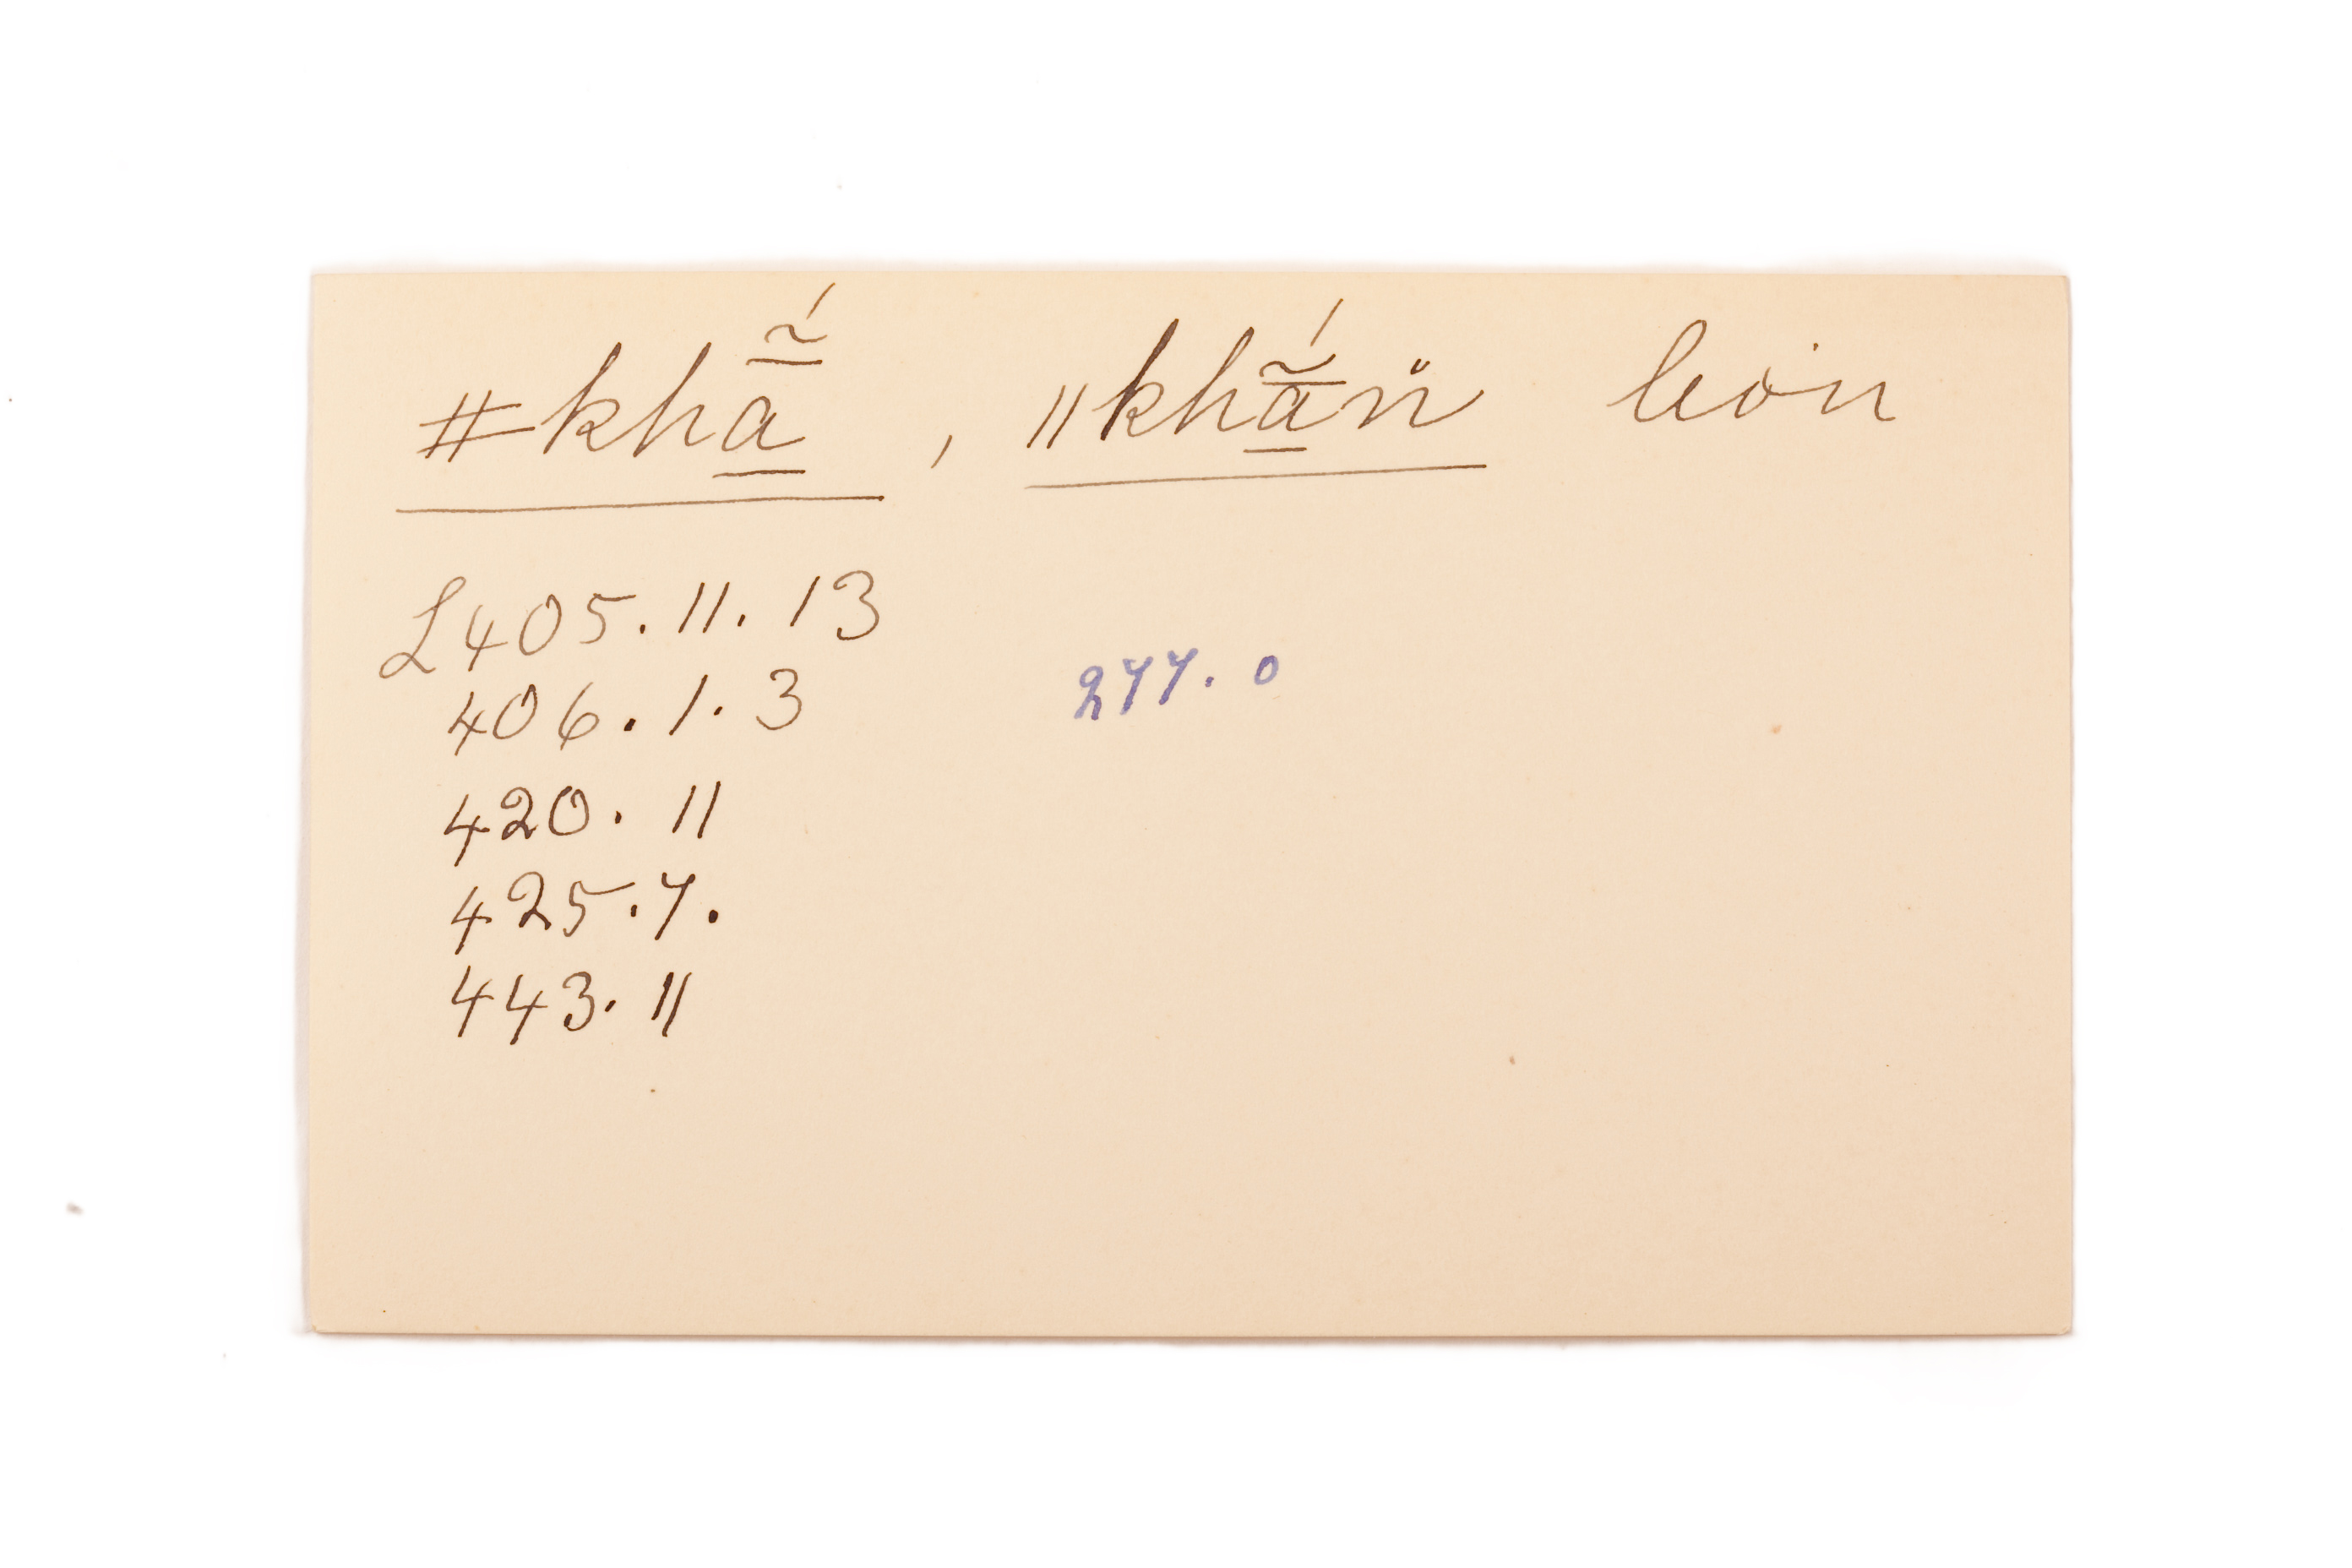 ǂkhā̰̃́, ǁkhā̰̃́n̈ lion
L405. 11. 13
406. 1. 3 277. 0
420. 11
425. 7.
443. 11